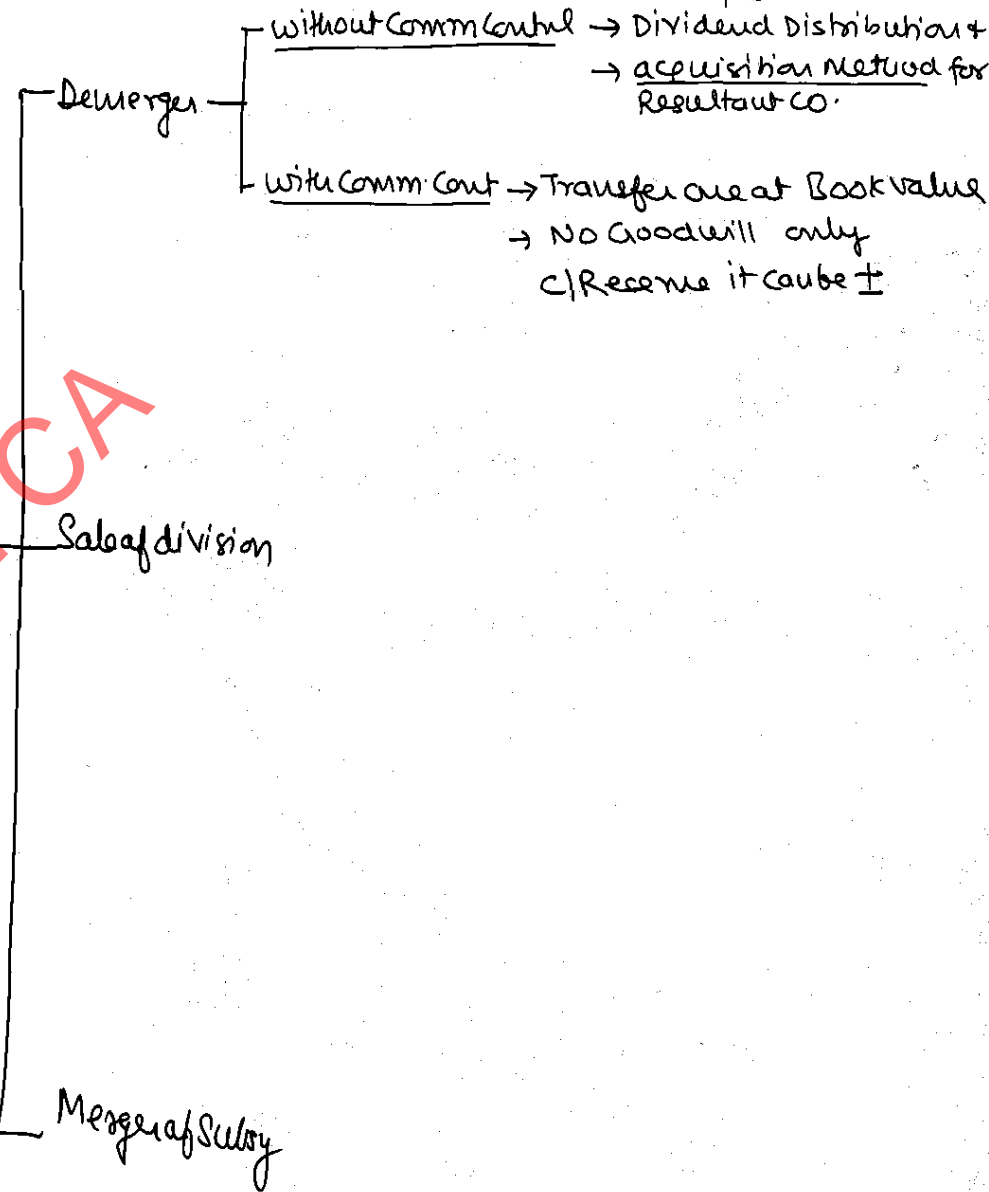 without Comm Control → Dividend Distribution +
→ acquisition Method for
Resultant CO.
Demerger
with Comm. Cont → Transfer are at Book value
→ No Goodwill only
C/Reserve it can be ±
CA
Sale of division
Merger of Subsy